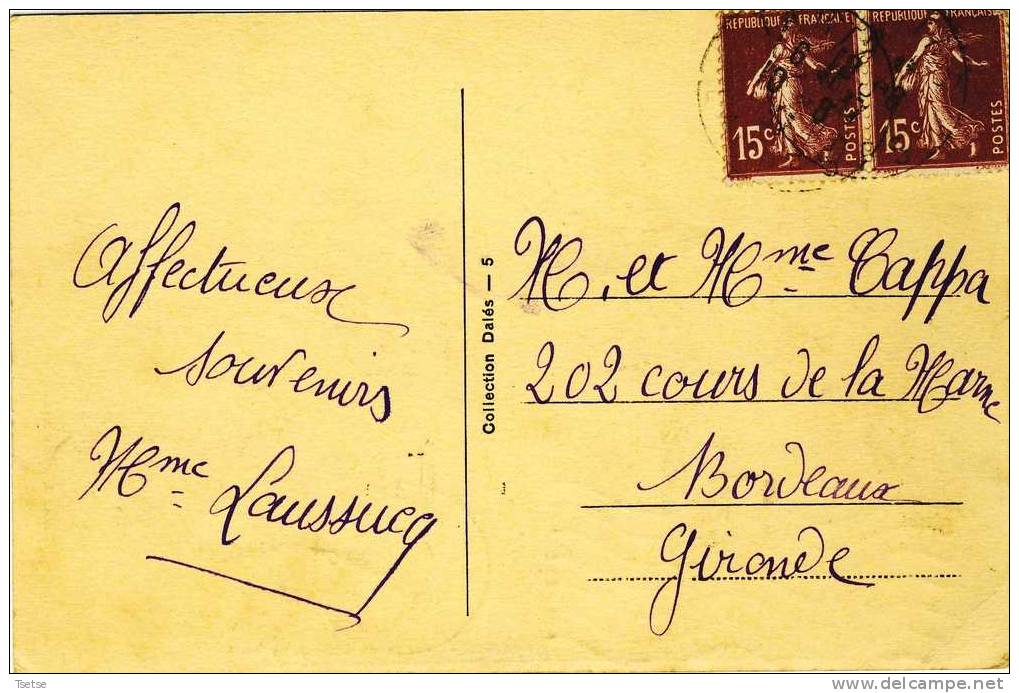 REPUBLIQUE FRANÇAISE
15c
POSTES
REPUBLIQUE FRANÇAISE
15c
POSTES
Affectueux
souvenirs
Mme Laussucq
Collection Dalés — 5
M. et Mme Cappa
202 cours de la Marne
Bordeaux
Gironde
Tsetse
delcampe.net